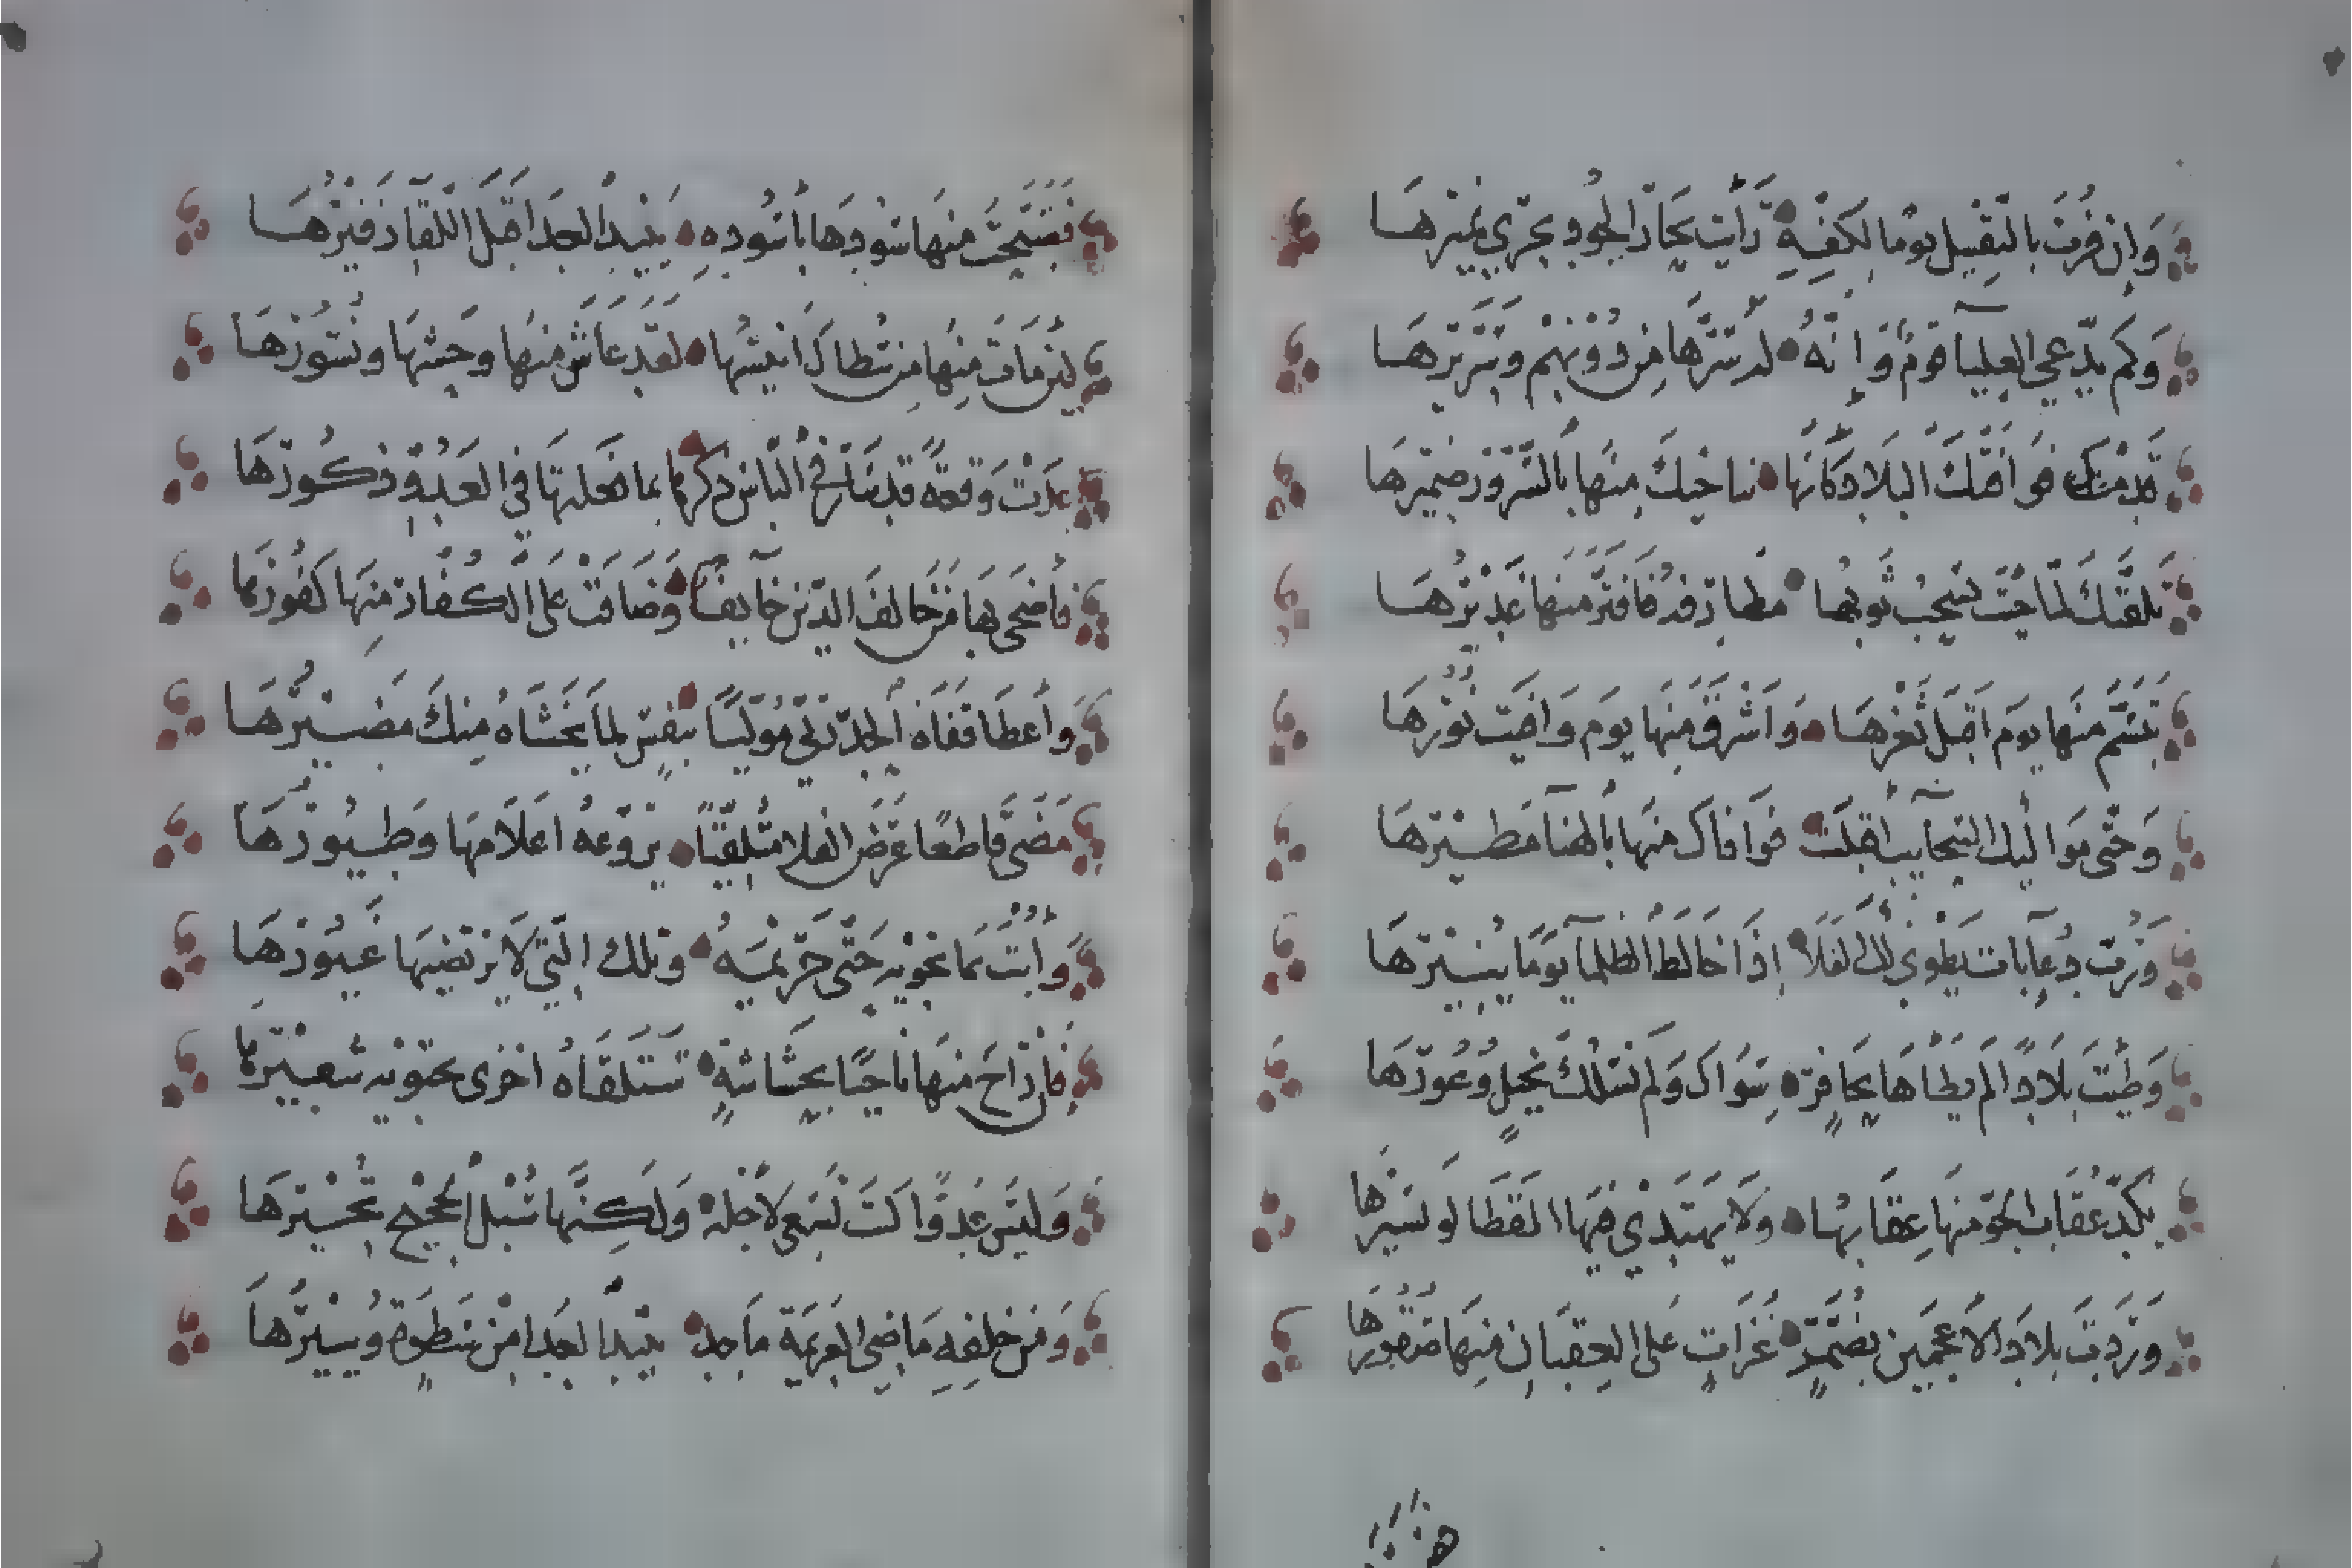 وَإِن فُزتَ بالتقبيل يومًا لكفِّهِ رَأَيت بحَارَ الجُودِ تجري نميرهَا
وَكم يدّعي العليآ قومٌ وَإنّهُ لدُ سترّهَا مِن دُونهِمْ وسَريرهَا
قدمتَ فوافتْكَ البلَادُ كأنّها تناجيكَ منها بالسّرُور ضميرهَا
تلقّتكَ لمّا جئت تسحبُ ثوبها مطارف منها غديرُهَا
تبسّم منهَا يومَ أقبلتَ ثغرهَا وَأشرقَ منها يوم وَافيت نُورُهَا
وَحتّى مواليك النجآيب أقبلَت فوافاك منهَا بالهنا
وَزُرت يَطوي لك الفَلَا إذَا خالطَ الظلمآ يومًا
وَطِئتَ بلَادًا لم يطَأهَا بحَافرٍ سِوَاكَ وَلم تسلك بخيلٍ وُعُورُهَا
يكدّ عُقَاب الجوّ منهَا عِقَابهُا وَلَا يهتَدِي فيهَا القَطَا لو نسيرُها
وَرَدتَ بلَادَ الأعجمين بضُمَّرٍ غَرَاب عَلى العِقبَان مِنهَا صُقُورُهَا
فصبّحتَ منهَا سُودهَا بأُسُودهِ يبيدُ العِدَا قبل اللقآ زفيرُهَا
لئن مَاتَ منهَا من سُطاكَ أنيسُهَا لقد عَاشَ منهَا وحشُهَا ونُسُورُهَا
غدَت وقعةً قد سَارَ في النّاسِ ذكرها بما فعَلتهَا في العَدُوّ ذكُورُهَا
فأضحَى بهَا مَن خَالفَ الدّين خآيفًا وَضَاقت عَلى الكُفّارِ منهَا كفورُها
وأعطَا قفَاهُ مُوَلّيًا بنفسٍ لما يخشَاهُ مِنكَ مصيرُهَا
مَضَى قاطعًا عَرْضَ الفلا متلفّتًا يروّعهُ أعلَامهَا وَطيُورُهَا
وَأُبتَ بما تحويهِ حتّى حَريمَهُ وتلكَ الّتي لَا يرتضيهَا غيُورُهَا
فإن رَاحَ منهَا نَاجيًا بحُشَاشةٍ ستلقَاهُ أخرَى تحتويه سَعِيرُهَا
وَليسَ عدُوًّا كنتَ تسعَى لأجله وَلكنّها سُبْل الحجيج تجيرُهَا
وَمن خلفهِ مَاضي العزيمةِ مَاجدٌ يُبيدُ العِدَا مِن سَطوةٍ ويُبيرُهَا